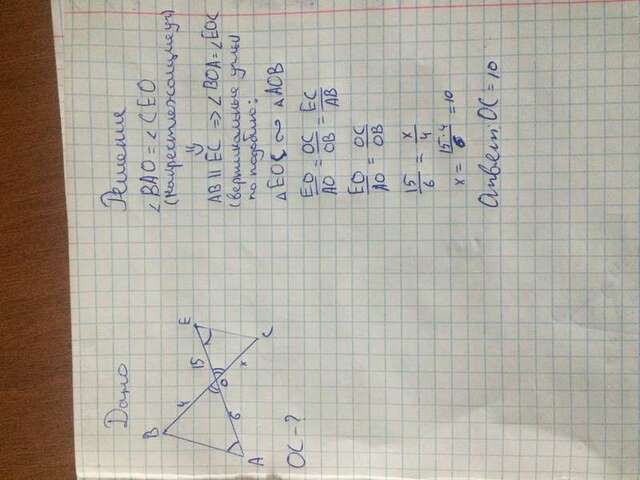 Дано
B
4
15
E
O
6
x
A
C
OC - ?
Решение
∠BAO = ∠CEO
(накрестлежащие уг)
⇓
AB || EC => ∠BOA = ∠EOC
(вертикальные углы
по подобию:
△EOC ∾ △AOB
EO/AO = OC/OB = EC/AB
EO/AO = OC/OB
15/6 = x/4
x = 15·4/6 = 10
Ответ: OC = 10